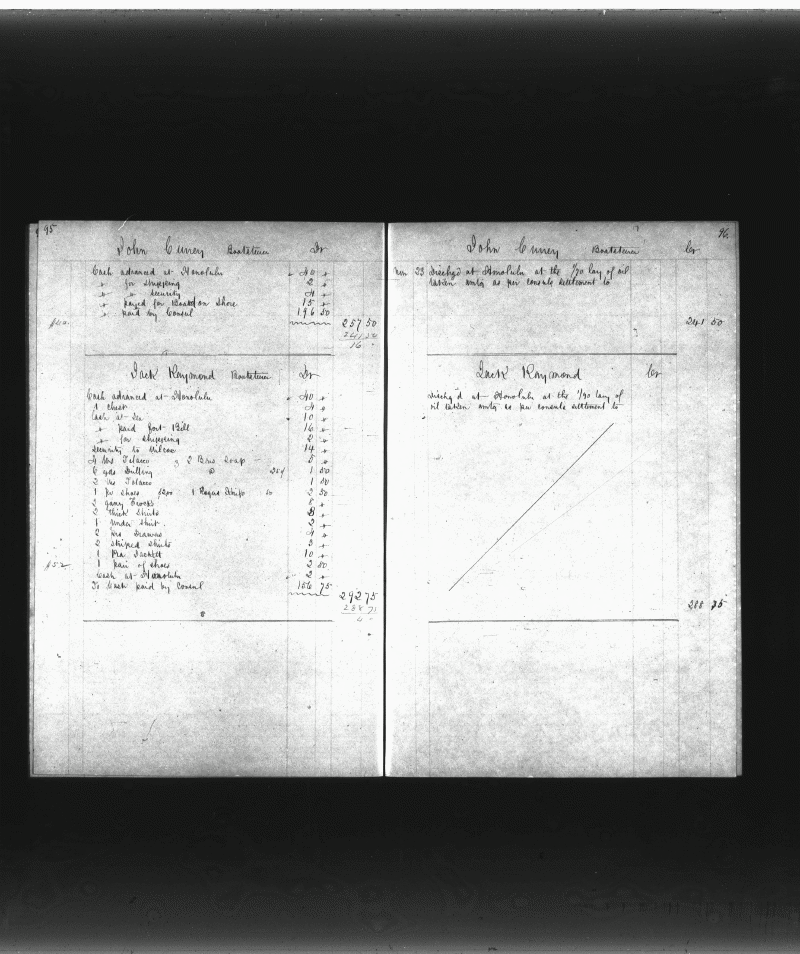 95
John Currey Boatsteerer Dr
Cash advanced at Honolulu " 40 "
" for shipping 2 "
" " security 4 "
" payed for Board on Shore 15 "
" paid by Consul 196 50
257 50
241 50
16 -
Jack Raymond Boatsteerer Dr
Cash advanced at Honolulu " 40 "
1 chest 4 "
Cash at Sea " 10 "
" paid Bill 16 "
" for shipping 2 "
Security to Wilcox 14 "
Tobacco 2 Bars Soap 5 "
6 yds Drilling @ 25¢ 1 50
2 lbs Tobacco 1 00
1 pr shoes $200 1 50 2 50
2 Frocks 8 "
2 thick shirts 8 "
1 under shirt 2 "
2 prs Drawers 4 "
2 striped shirts 3 "
1 Pea Jackett 10 "
1 pair of shoes 2 00
Cash at Honolulu 2 "
To Cash paid by Consul 156 75
292 75
288 75
4 -
96
John Currey Boatsteerer Cr
23 Dischgd at Honolulu at the 1/70 lay of oil
taken amtg as per consuls settlement to
241 50
Jack Raymond Cr
Dischg'd at Honolulu at the 1/90 lay of
oil taken amtg as per consuls settlement to
288 75